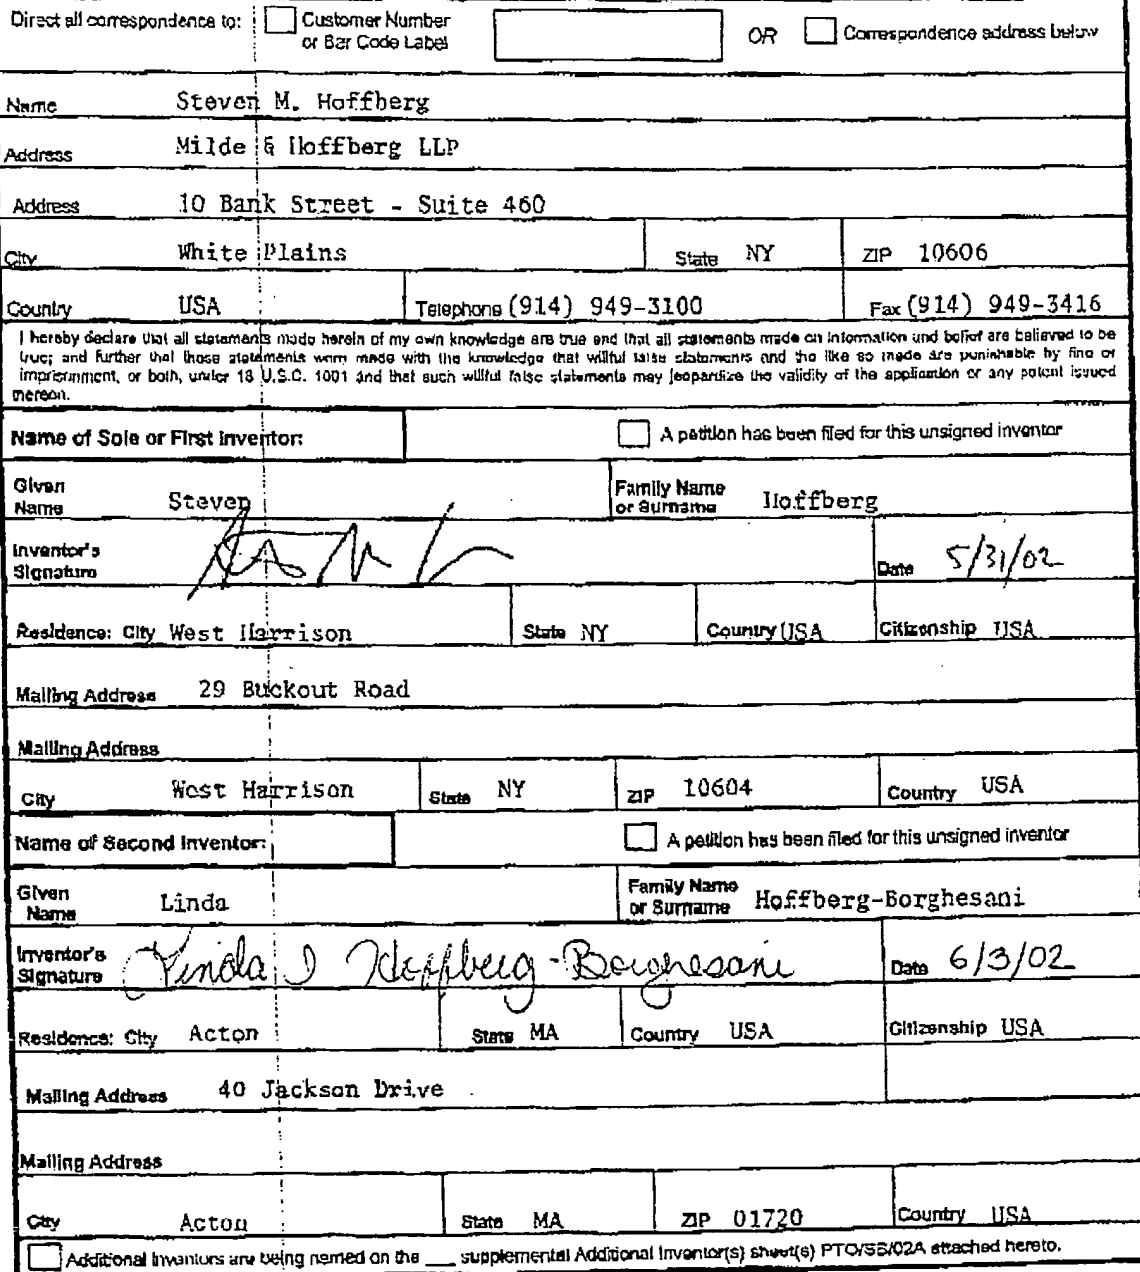 Direct all correspondence to: Customer Number or Bar Code Label OR Correspondence address below
Name Steven M. Hoffberg
Address Milde & Hoffberg LLP
Address 10 Bank Street - Suite 460
City White Plains State NY ZIP 10606
Country USA Telephone (914) 949-3100 Fax (914) 949-3416
I hereby declare that all statements made herein of my own knowledge are true and that all statements made on information and belief are believed to be
true; and further that these statements were made with the knowledge that willful false statements and the like so made are punishable by fine or
imprisonment, or both, under 18 U.S.C. 1001 and that such willful false statements may jeopardize the validity of the application or any patent issued
thereon.
Name of Sole or First Inventor: A petition has been filed for this unsigned inventor
Given Name Steven Family Name or Surname Hoffberg
Inventor's Signature Date 5/31/02
Residence: City West Harrison State NY Country USA Citizenship USA
Mailing Address 29 Buckout Road
Mailing Address
City West Harrison State NY ZIP 10604 Country USA
Name of Second Inventor: A petition has been filed for this unsigned inventor
Given Name Linda Family Name or Surname Hoffberg-Borghesani
Inventor's Signature Linda I Hoffberg-Borghesani Date 6/3/02
Residence: City Acton State MA Country USA Citizenship USA
Mailing Address 40 Jackson Drive
Mailing Address
City Acton State MA ZIP 01720 Country USA
Additional inventors are being named on the ___ supplemental Additional Inventor(s) sheet(s) PTO/SB/02A attached hereto.